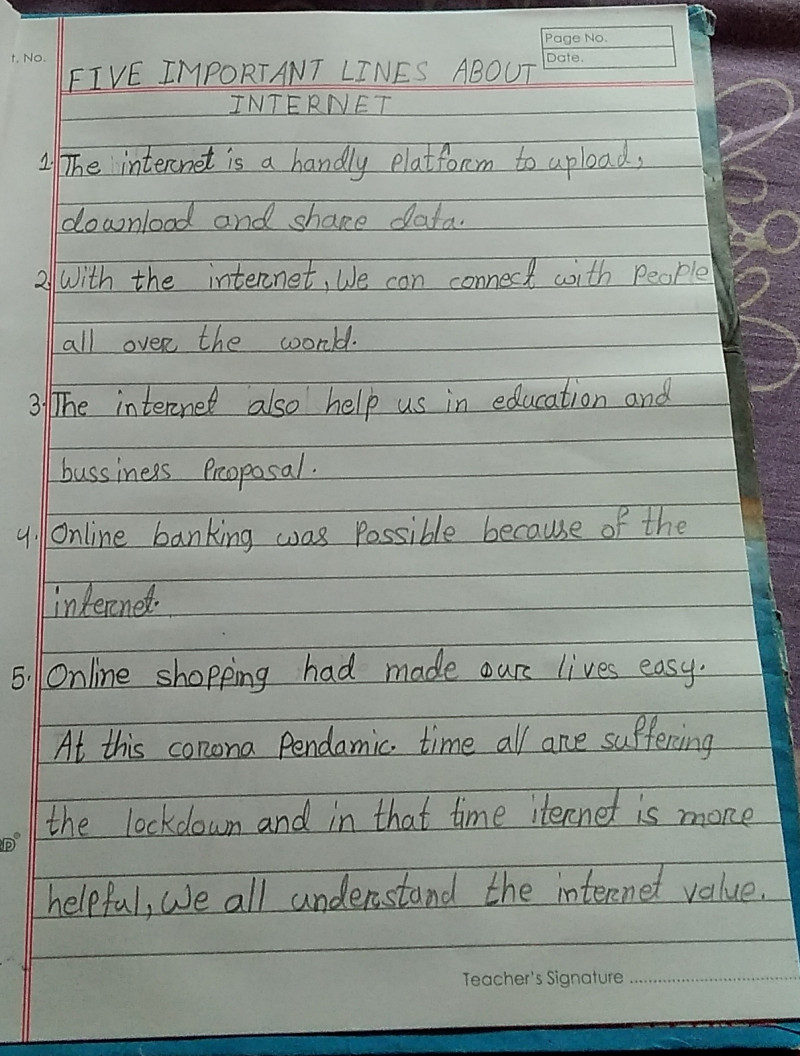 t. No.
Page No.
Date.
FIVE IMPORTANT LINES ABOUT
INTERNET
1. The internet is a handly platform to upload,
download and share data.
2. With the internet, We can connect with people
all over the world.
3. The internet also help us in education and
bussiness Proposal.
4. Online banking was Possible because of the
internet.
5. Online shopping had made our lives easy.
At this corona Pendamic. time all are suffering
the lockdown and in that time iternet is more
helpful, We all understand the internet value.
Teacher's Signature